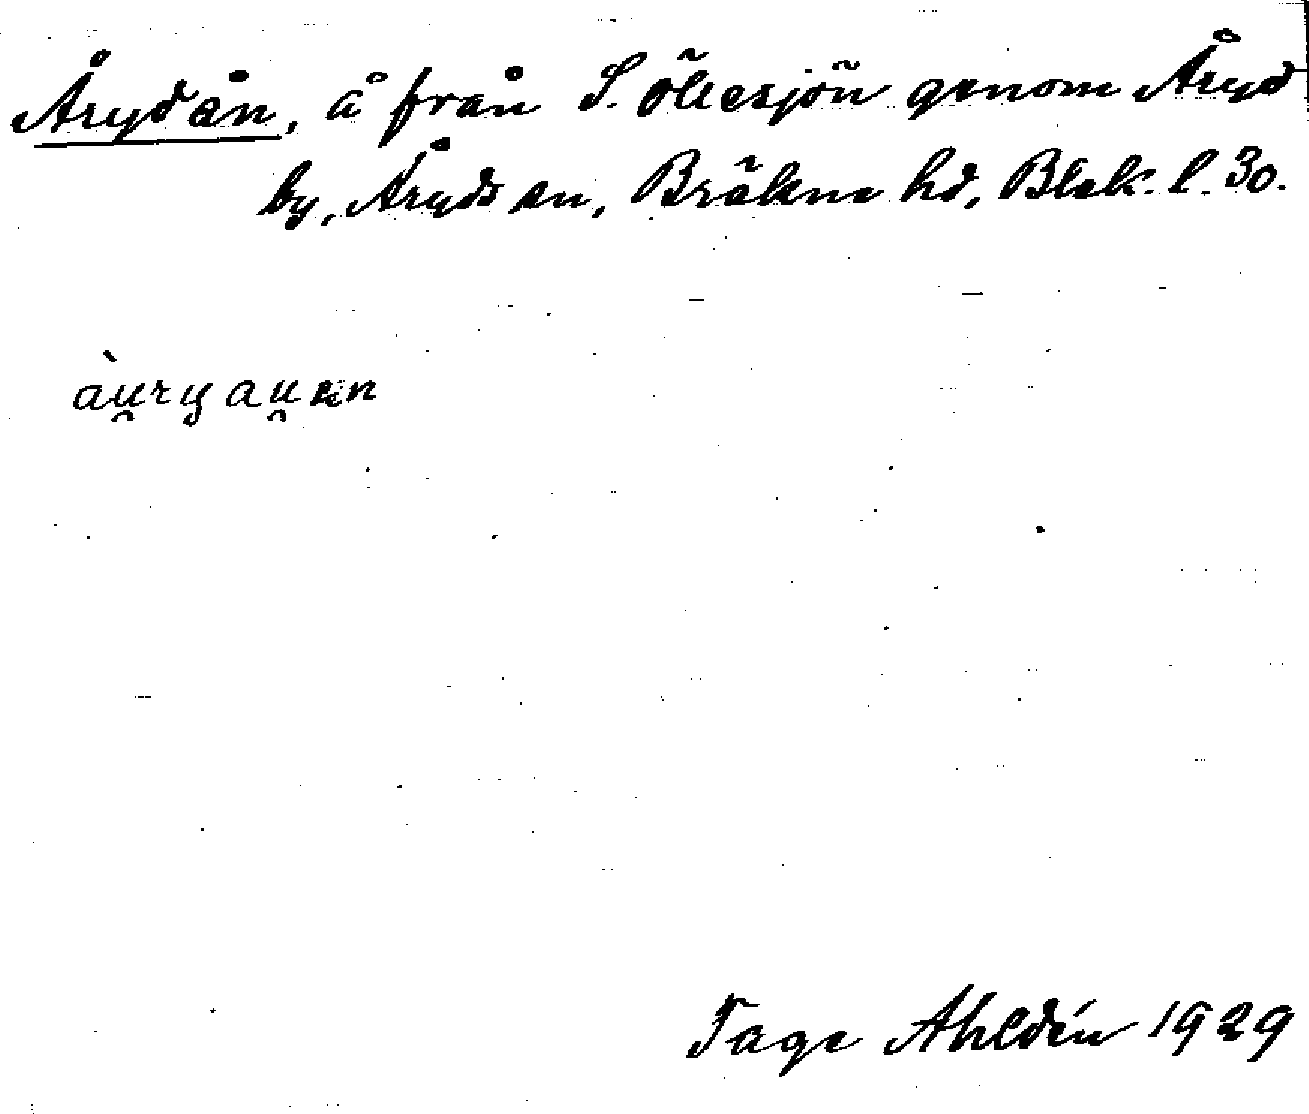 Årydån, å från S. Öllesjön genom Åryd
by, Åryds sn, Bräkne hd, Blek. l. 30.
àu̯ry au̯en
Tage Ahldén 1929